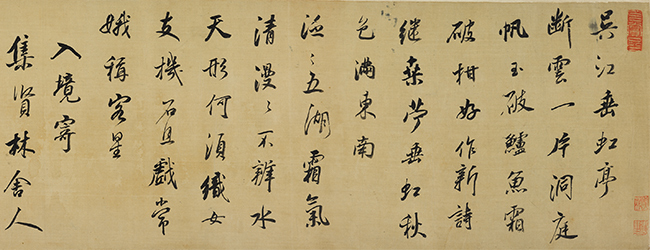 吳江垂虹亭
斷雲一片洞庭
帆玉破鱸魚霜
破柑好作新詩
繼桑苧垂虹秋
色滿東南
泛〻五湖霜氣
清漫〻不辨水
天形何須織女
支機石且戲常
娥稱客星
入境寄
集賢林舍人